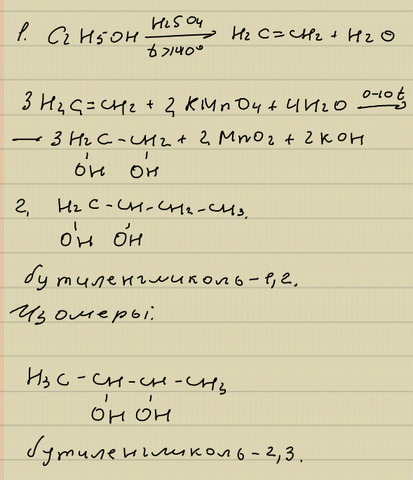 1. C2H5OH H2SO4 t>140° → H2C=CH2 + H2O
3H2C=CH2 + 2KMnO4 + 4H2O 0-10t →
→ 3H2C-CH2 + 2MnO2 + 2KOH
OH OH
2, H2C-CH-CH2-CH3.
OH OH
бутиленгликоль-1,2.
Изомеры:
H3C-CH-CH-CH3
OH OH
бутиленгликоль-2,3.